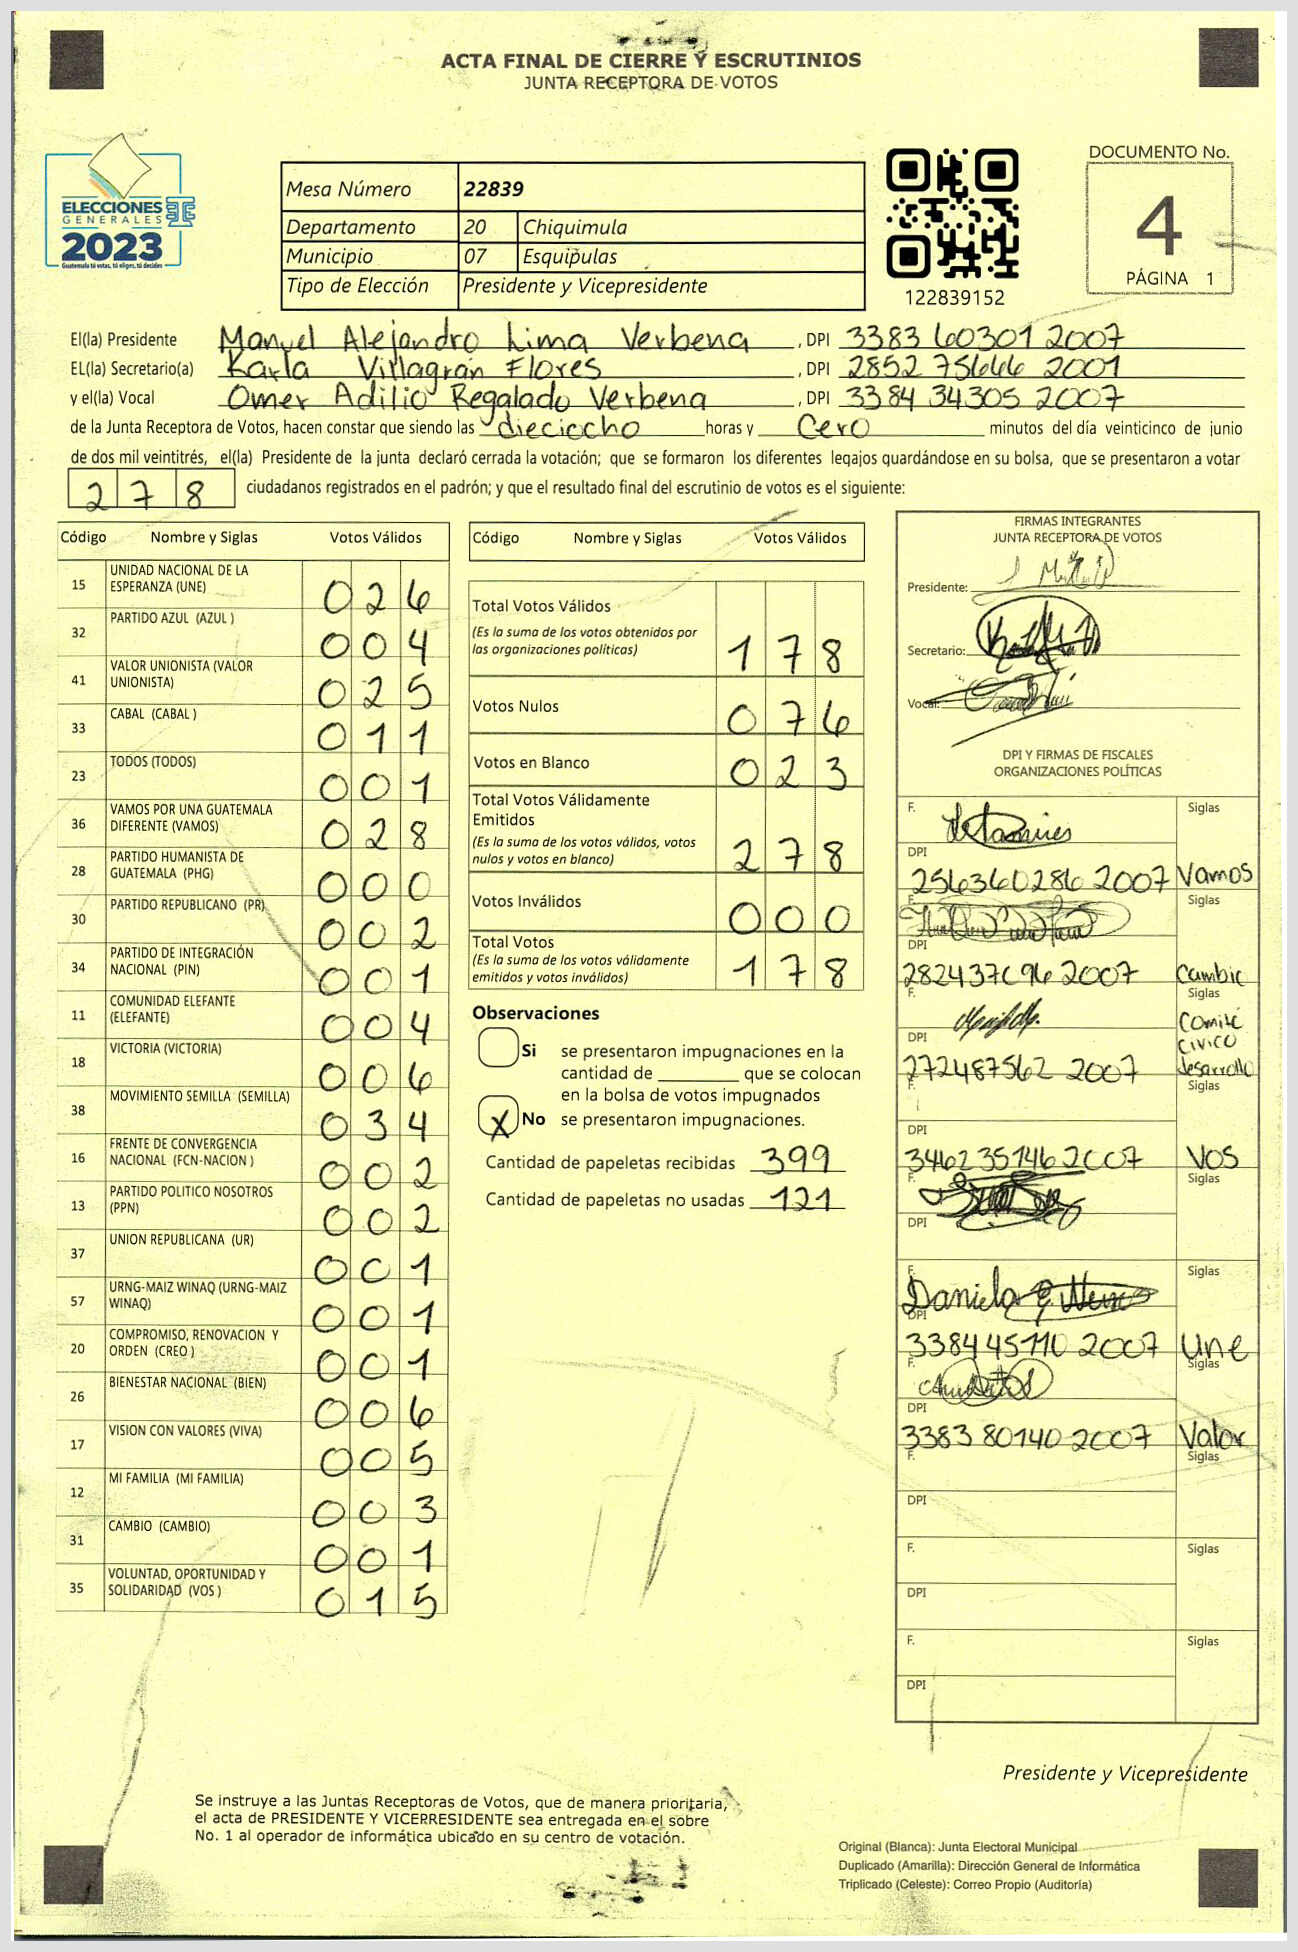 ACTA FINAL DE CIERRE Y ESCRUTINIOS
JUNTA RECEPTORA DE VOTOS
ELECCIONES
GENERALES
2023
Guatemala tú votas, tú eliges, tú decides
Mesa Número 22839
Departamento 20 Chiquimula
Municipio 07 Esquipulas
Tipo de Elección Presidente y Vicepresidente
122839152
DOCUMENTO No.
4
PÁGINA 1
El(la) Presidente Manuel Alejandro Lima Verbena , DPI 3383 60301 2007
EL(la) Secretario(a) Karla Villagrán Flores , DPI 2852 75666 2001
y el(la) Vocal Omer Adilio Regalado Verbena , DPI 3384 34305 2007
de la Junta Receptora de Votos, hacen constar que siendo las dieciocho horas y Cero minutos del día veinticinco de junio
de dos mil veintitrés, el(la) Presidente de la junta declaró cerrada la votación; que se formaron los diferentes legajos guardándose en su bolsa, que se presentaron a votar
278 ciudadanos registrados en el padrón; y que el resultado final del escrutinio de votos es el siguiente:
Código Nombre y Siglas Votos Válidos
15 UNIDAD NACIONAL DE LA ESPERANZA (UNE) 026
32 PARTIDO AZUL (AZUL ) 004
41 VALOR UNIONISTA (VALOR UNIONISTA) 025
33 CABAL (CABAL ) 011
23 TODOS (TODOS) 001
36 VAMOS POR UNA GUATEMALA DIFERENTE (VAMOS) 028
28 PARTIDO HUMANISTA DE GUATEMALA (PHG) 000
30 PARTIDO REPUBLICANO (PR) 002
34 PARTIDO DE INTEGRACIÓN NACIONAL (PIN) 001
11 COMUNIDAD ELEFANTE (ELEFANTE) 004
18 VICTORIA (VICTORIA) 006
38 MOVIMIENTO SEMILLA (SEMILLA) 034
16 FRENTE DE CONVERGENCIA NACIONAL (FCN-NACION ) 002
13 PARTIDO POLITICO NOSOTROS (PPN) 002
37 UNION REPUBLICANA (UR) 001
57 URNG-MAIZ WINAQ (URNG-MAIZ WINAQ) 001
20 COMPROMISO, RENOVACION Y ORDEN (CREO ) 001
26 BIENESTAR NACIONAL (BIEN) 006
17 VISION CON VALORES (VIVA) 005
12 MI FAMILIA (MI FAMILIA) 003
31 CAMBIO (CAMBIO) 001
35 VOLUNTAD, OPORTUNIDAD Y SOLIDARIDAD (VOS ) 015
Código Nombre y Siglas Votos Válidos
Total Votos Válidos
(Es la suma de los votos obtenidos por
las organizaciones políticas) 178
Votos Nulos 076
Votos en Blanco 023
Total Votos Válidamente
Emitidos
(Es la suma de los votos válidos, votos
nulos y votos en blanco) 278
Votos Inválidos 000
Total Votos
(Es la suma de los votos válidamente
emitidos y votos inválidos) 178
Observaciones
Si se presentaron impugnaciones en la
cantidad de ________ que se colocan
en la bolsa de votos impugnados
X No se presentaron impugnaciones.
Cantidad de papeletas recibidas 399
Cantidad de papeletas no usadas 121
FIRMAS INTEGRANTES
JUNTA RECEPTORA DE VOTOS
Presidente:
Secretario:
Vocal:
DPI Y FIRMAS DE FISCALES
ORGANIZACIONES POLÍTICAS
F. Siglas
DPI
256360286 2007 Vamos
F. Siglas
DPI
282437096 2007 Cambio
F. Siglas
DPI Comité civico desarrollo
272487562 2007
F. Siglas
DPI
3462 35146 2007 VOS
F. Siglas
DPI
F. Siglas
Daniela
DPI
3384 45110 2007 Une
F. Siglas
DPI
3383 80140 2007 Valor
F. Siglas
DPI
F. Siglas
DPI
F. Siglas
DPI
Presidente y Vicepresidente
Se instruye a las Juntas Receptoras de Votos, que de manera prioritaria,
el acta de PRESIDENTE Y VICERRESIDENTE sea entregada en el sobre
No. 1 al operador de informática ubicado en su centro de votación.
Original (Blanca): Junta Electoral Municipal
Duplicado (Amarilla): Dirección General de Informática
Triplicado (Celeste): Correo Propio (Auditoría)